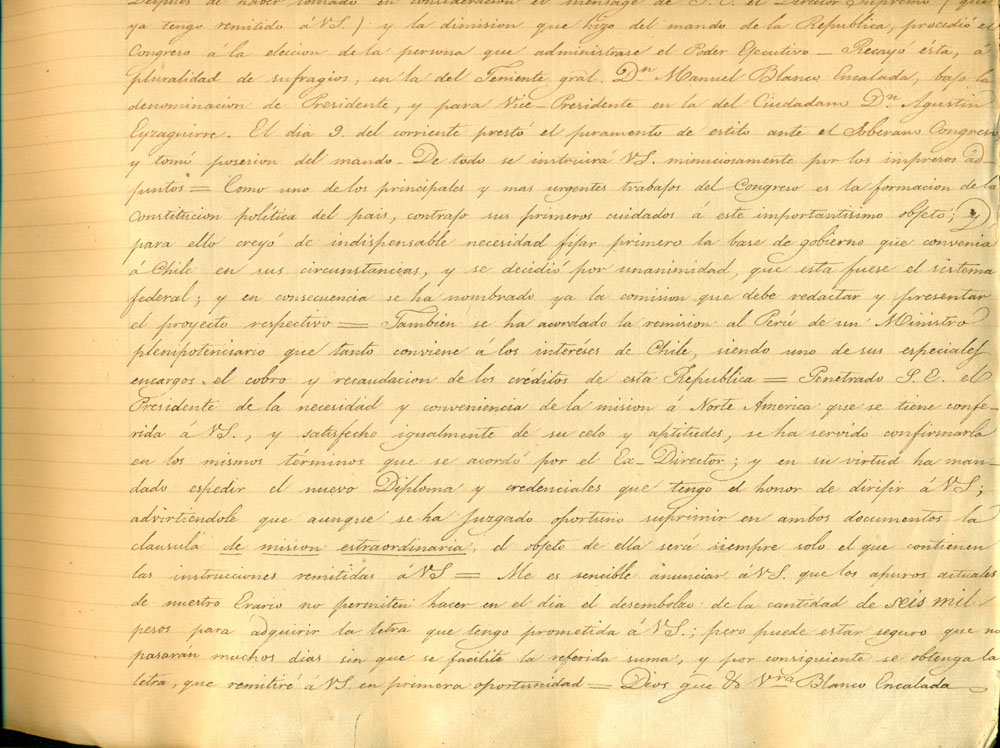 Despues de haber tomado en consideracion el mensage de S. E. el Director Supremo (que
ya tengo remitido á VS) y la dimision que hizo del mando de la Republica, procedió el
Congreso a la eleccion de la persona que administrase el Poder Ejecutivo — Recayó ésta, á
pluralidad de sufragios, en la del Teniente gral. Dn Manuel Blanco Encalada, bajo la
denominacion de Presidente, y para Vice-Presidente en la del Ciudadano Dn. Agustin
Eyzaguirre. El dia 9. del corriente prestó el juramento de estilo ante el Soberano Congreso
y tomó posesion del mando. De todo se instruirá VS. minuciosamente por los impresos ad-
juntos = Como uno de los principales y mas urgentes trabajos del Congreso es la formacion de la
constitucion politica del pais, contrajo sus primeros cuidados á este importantisimo objeto; y
para ello creyó de indispensable necesidad fijar primero la base de gobierno que convenia
á Chile en sus circunstancias, y se decidió por unanimidad, que esta fuese el sistema
federal; y en consecuencia se ha nombrado ya la comision que debe redactar y presentar
el proyecto respectivo = Tambien se ha acordado la remision al Perú de un Ministro
plenipotenciario que tanto conviene á los interéses de Chile, siendo uno de sus especiales
encargos el cobro y recaudacion de los creditos de esta Republica = Penetrado S. E. el
Presidente de la necesidad y conveniencia de la mision á Norte America que se tiene confe-
rida á VS., y satisfecho igualmente de su celo y aptitudes, se ha servido confirmarla
en los mismos términos que se acordó por el Ex-Director; y en su virtud ha man-
dado espedir el nuevo Diploma y credenciales que tengo el honor de dirijir á VS;
advirtiendole que aunque se ha juzgado oportuno suprimir en ambos documentos la
clausula de mision estraordinaria, el objeto de ella será siempre solo el que contienen
las instrucciones remitidas á VS = Me es sencible anunciar á VS. que los apuros actuales
de nuestro Erario no permiten hacer en el dia el desembolso de la cantidad de seis mil
pesos para adquirir la letra que tengo prometida á VS.; pero puede estar seguro que no
pasarán muchos dias sin que se facilite la referida suma, y por consiguiente se obtenga la
letra, que remitiré á VS. en primera oportunidad = Dios gue & Vra Blanco Encalada